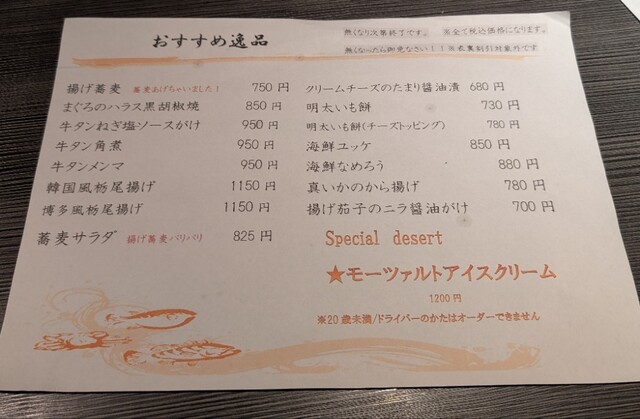 おすすめ逸品
無くなり次第終了です。 ※全て税込価格になります。
無くなったら御免なさい！！※衣裏割引対象外です
揚げ蕎麦 蕎麦あげちゃいました！ 750 円
まぐろのハラス黒胡椒焼 850 円
牛タンねぎ塩ソースがけ 950 円
牛タン角煮 950 円
牛タンメンマ 950 円
韓国風栃尾揚げ 1150 円
博多風栃尾揚げ 1150 円
蕎麦サラダ 揚げ蕎麦パリパリ 825 円
クリームチーズのたまり醤油漬 680 円
明太いも餅 730 円
明太いも餅(チーズトッピング) 780 円
海鮮ユッケ 850 円
海鮮なめろう 880 円
真いかのから揚げ 780 円
揚げ茄子のニラ醤油がけ 700 円
Special desert
★モーツァルトアイスクリーム
1200 円
※20 歳未満/ドライバーのかたはオーダーできません